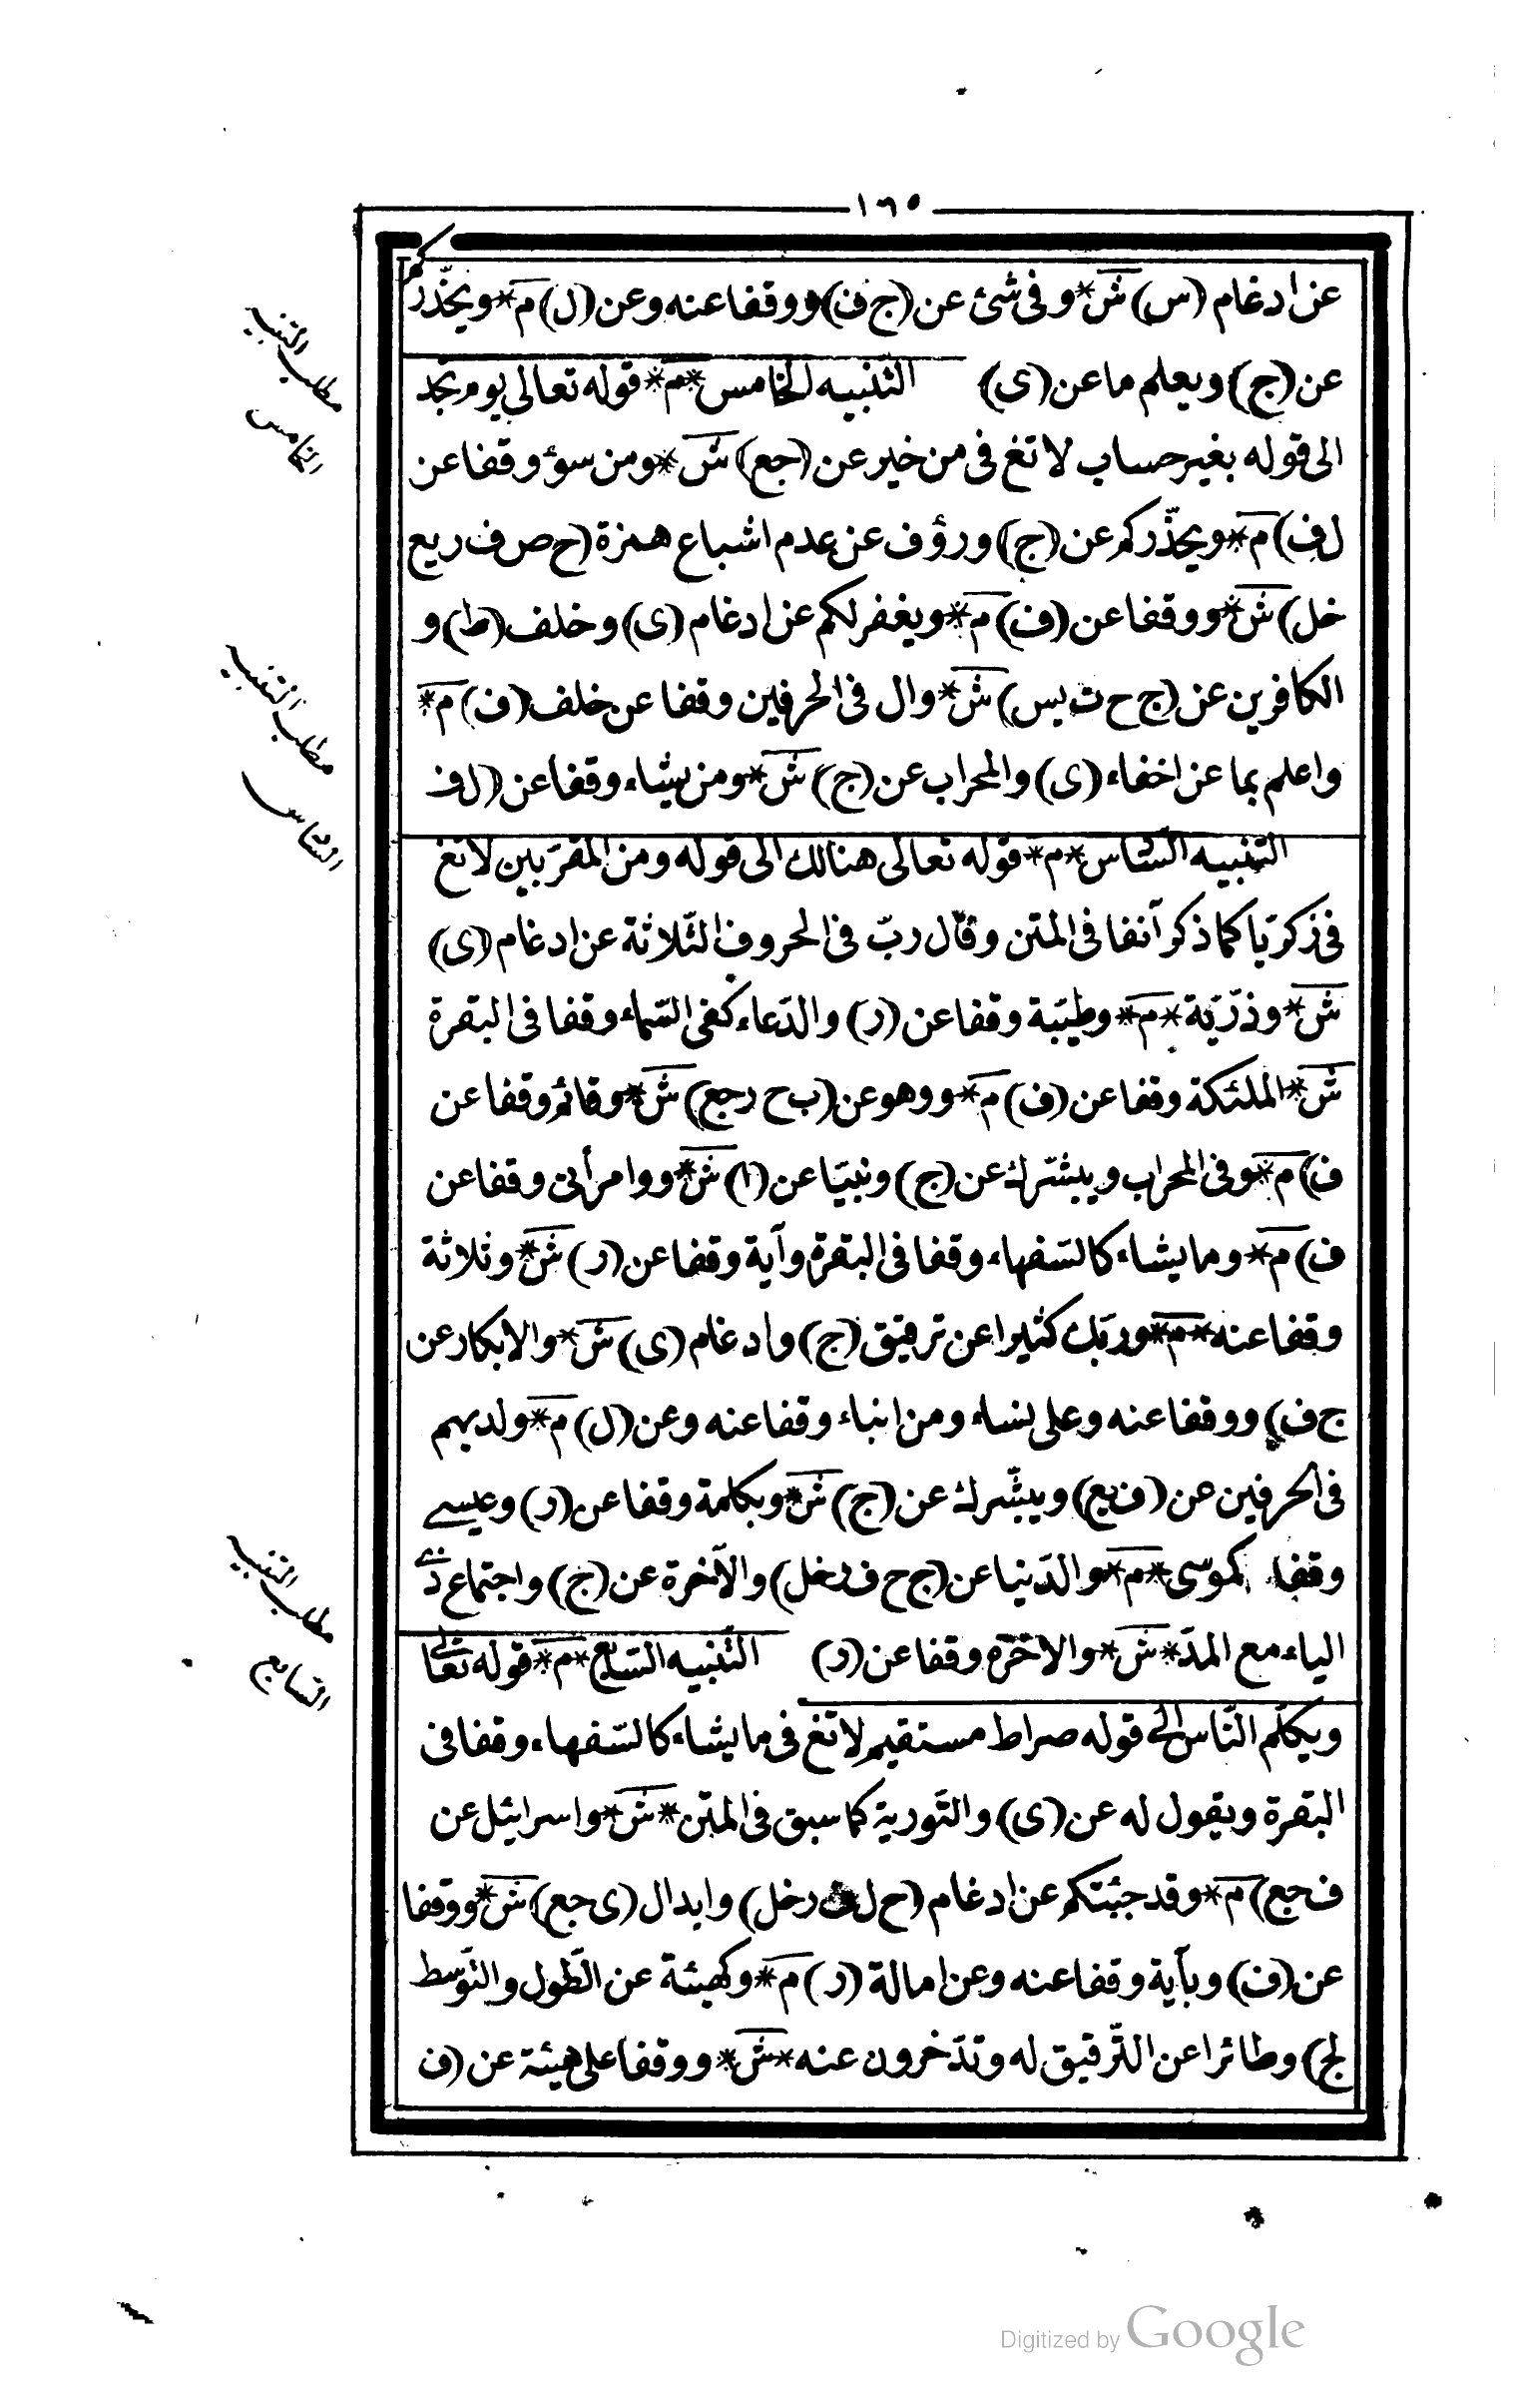 ١٦٥
عن ادغام (س) ش * وفى شئ عن (ج ف) ووقفا عنه وعن (ل) م * ويحذّركم
عن (ج) ويعلم ما عن (ى) التّنبيه الخامس * م * قوله تعالى يوم تجد
الى قوله بغير حساب لا تغ فى من خير عن (جع) ش * ومن سوء وقفا عن
ل ف) م * ويحذّركم عن (ج) ورؤف عن عدم اشباع همزة (ح ص ف ر يع
خل) ش * ووقفا عن (ف) م * ويغفر لكم عن ادغام (ى) وخلف (ط) و
الكافرين عن (ج ح ت يس) ش * وال فى الحرفين وقفا عن خلف (ف) م *
واعلم بما عن اخفاء (ى) والمحراب عن (ج) ش * ومن يشاء وقفا عن (ل ف
التّنبيه السّادس * م * قوله تعالى هنالك الى قوله ومن المقرّبين لا تغ
فى زكريّا كما ذكر آنفا فى المتن وقال ربّ فى الحروف الثّلاثة عن ادغام (ى)
ش * وذرّيّة * م * وطيّبة وقفا عن (ر) والدّعاء كفى السّماء وقفا فى البقرة
ش * الملئكة وقفا عن (ف) م * ووهو عن (ب ح ر جع) ش * وقائم وقفا عن
ف) م * وفى المحراب ويبشّرك عن (ج) ونبيّا عن (ا) ش * ووامرأتى وقفا عن
ف) م * وما يشاء كالسّفهاء وقفا فى البقرة وآية وقفا عن (ر) ش * وثلاثة
وقفا عنه * م * وربّك كثيرا عن ترقيق (ج) وادغام (ى) ش * والابكار عن
ج ف) ووقفا عنه وعلى نساء ومن انباء وقفا عنه وعن (ل) م * ولديهم
فى الحرفين عن (ف يع) ويبشّرك عن (ج) ش * وبكلمة وقفا عن (ر) وعيسى
وقفا كموسى * م * والدّنيا عن (ج ح ف ر خل) والآخرة عن (ج) واجتماع ذى
الياء مع المدّ * ش * والاخرة وقفا عن (ر) التّنبيه السّابع * م * قوله تعالى
ويكلّم النّاس الى قوله صراط مستقيم لا تغ فى ما يشاء كالسّفهاء وقفا فى
البقرة ويقول له عن (ى) والتّورية كما سبق فى المتن * ش * واسرائيل عن
ف جع) م * وقد جئتكم عن ادغام (ح ل ف ر خل) وابدال (ى جع) ش * ووقفا
عن (ف) وبآية وقفا عنه وعن امالة (ر) م * وكهيئة عن الطّول والتّوسط
لج) وطائرا عن التّرقيق له وتدّخرون عنه * ش * ووقفا على هيئة عن (ف
مطلب التّنبيه
الخامس
مطلب التّنبيه
السّادس
مطلب التّنبيه
السّابع
Digitized by Google